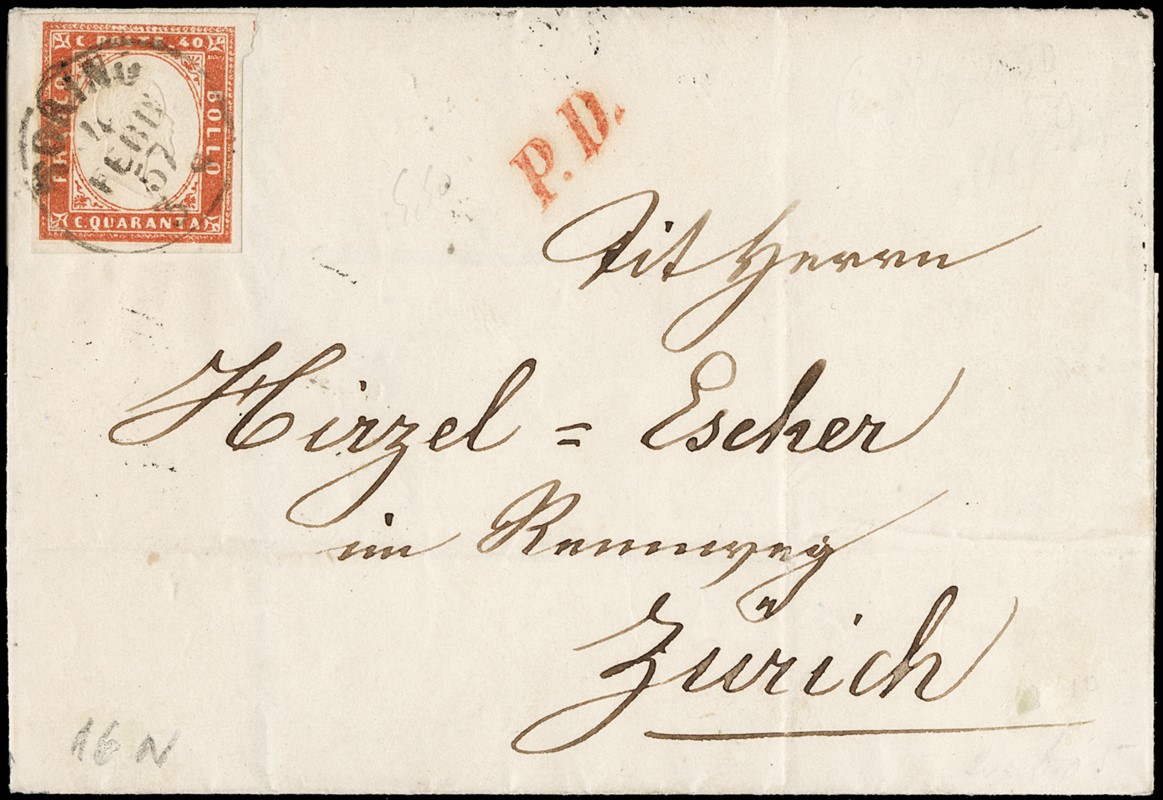 C. POSTE. 40
FRANCO BOLLO
C. QUARANTA
TORINO
14
FEBB
57
P. D.
Tit Herrn
Hirzel = Escher
im Rennweg
Zürich
16 N